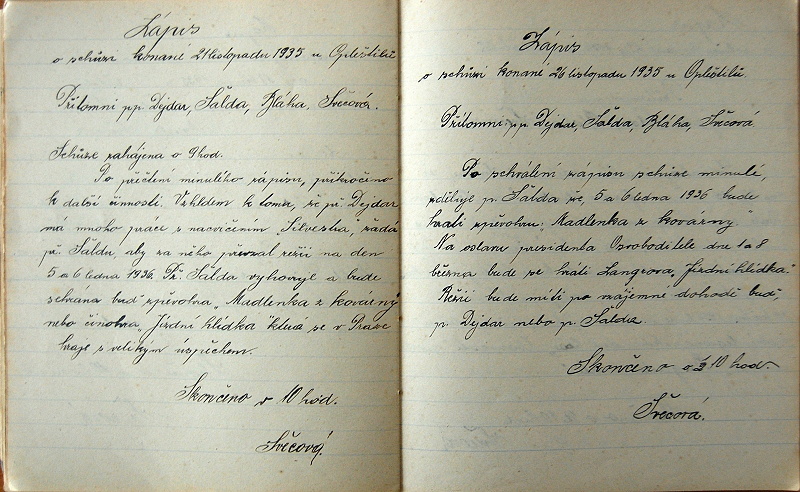 Zápis
o schůzi konané 21 listopadu 1935 u Opleštilů
Přítomni pp. Dejdar, Šálda, Bláha, Švecová.
Schůze zahájena o 9 hod.
Po přečtení minulého zápisu, přikročeno
k další činnosti. Vzhledem k tomu, že př. Dejdar
má mnoho práce s nacvičením „Silvestra", žádá
př. Šáldu, aby za něho převzal režii na den
5 a 6 ledna 1936. Př. Šálda vyhověl a bude
sehrána buď zpěvohra „Madlenka z kovárny"
nebo činohra „Jízdní hlídka" která se v Praze
hraje s velikým úspěchem.
Skončeno v 10 hod.
Švecová.
Zápis
o schůzi konané 26 listopadu 1935 u Opleštilů.
Přítomni: pp. Dejdar, Šálda, Bláha, Švecová
Po schválení zápisu schůze minulé,
sděluje p. Šálda že, 5 a 6 ledna 1936 bude
hráti zpěvohru: „Madlenka z kovárny."
Na oslavu presidenta Osvoboditele dne 1 a 8
března bude se hráti Langrova „Jízdní hlídka."
Režii bude míti po vzájemné dohodě buď,
p. Dejdar nebo p. Šálda.
Skončeno o ½ 10 hod.
Švecová.